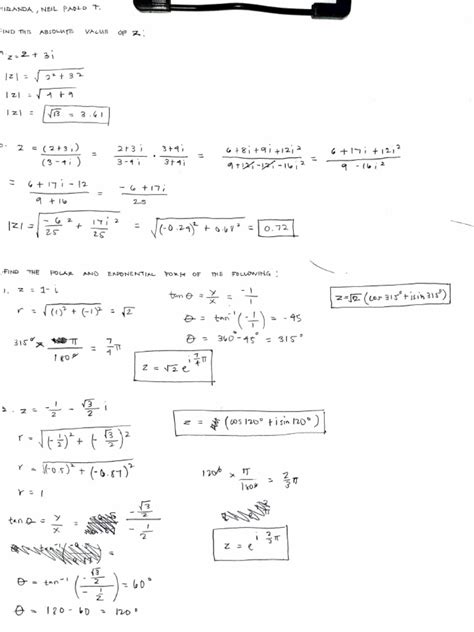 MIRANDA, NEIL PAOLO T.
FIND THE ABSOLUTE VALUE OF Z:
z = 2 + 3i
|z| = √(2² + 3²)
|z| = √(4 + 9)
|z| = √13 = 3.61
z = (2+3i)/(3-4i) = (2+3i)/(3-4i) · (3+4i)/(3+4i) = (6+8i+9i+12i²)/(9+12i-12i-16i²) = (6+17i+12i²)/(9-16i²)
= (6+17i-12)/(9+16) = (-6+17i)/25
|z| = √(-6/25² + 17i/25²) = √((-0.24)² + 0.68²) = 0.72
FIND THE POLAR AND EXPONENTIAL FORM OF THE FOLLOWING:
1. z = 1-i
tan θ = y/x = -1/1
z = √2 (cos 315° + i sin 315°)
r = √((1)² + (-1)²) = √2
θ = tan⁻¹(-1/1) = -45
θ = 360° - 45° = 315°
315° × π/180° = 7/4 π
z = √2 e^(i 7/4 π)
2. z = -1/2 - √3/2 i
z = (cos 120° + i sin 120°)
r = √((-1/2)² + (-√3/2)²)
r = √((-0.5)² + (-0.87)²)
120° × π/180° = 2/3 π
r = 1
tan θ = y/x = (-√3/2)/(-1/2)
z = e^(i 2/3 π)
θ = tan⁻¹((-√3/2)/(-1/2)) = 60°
θ = 180 - 60 = 120°